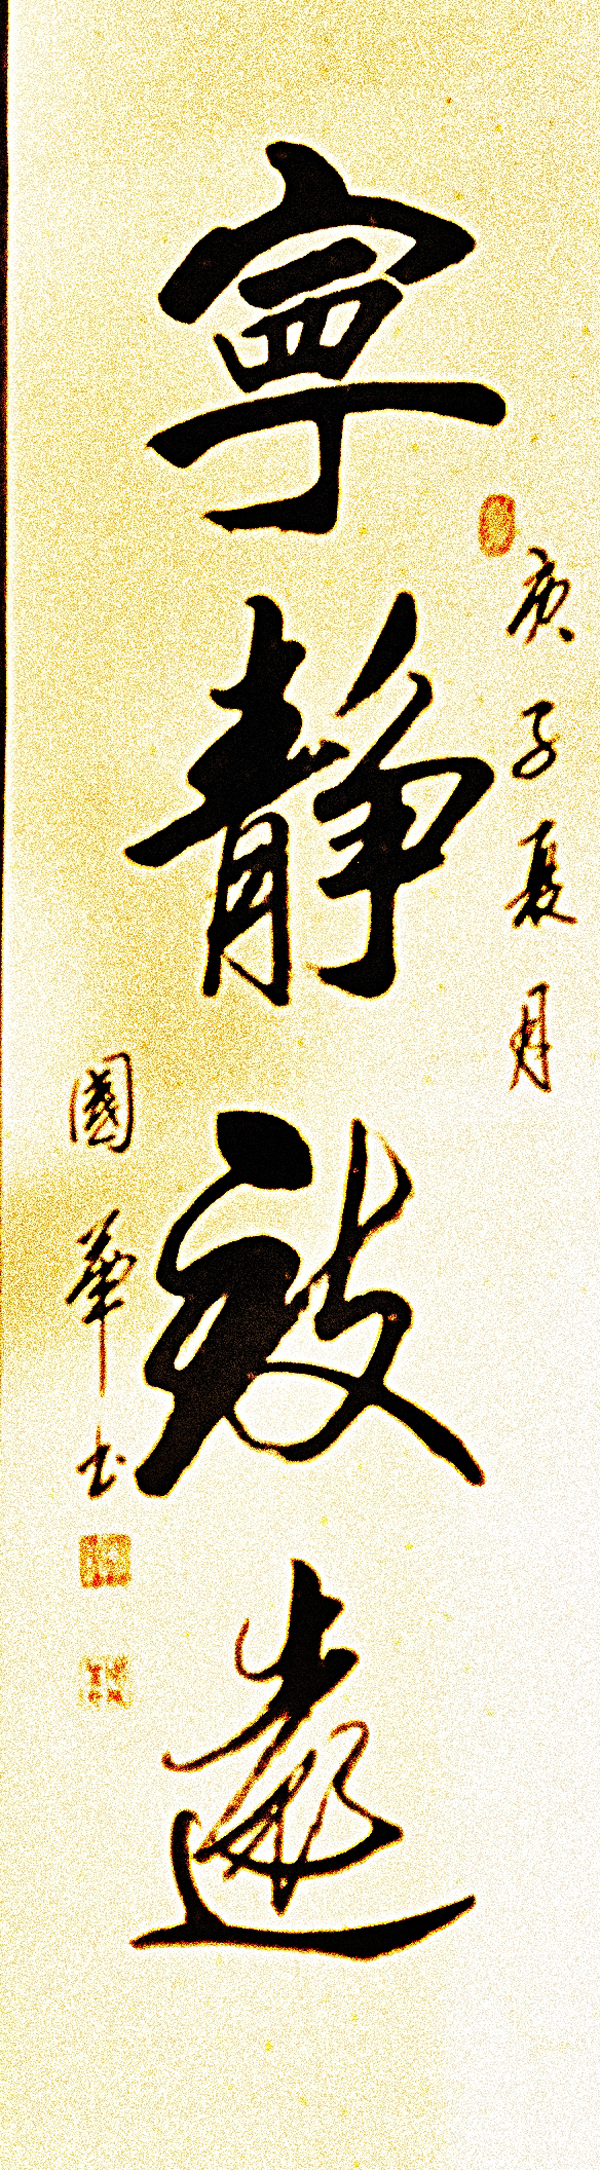 庚子夏月
寧靜致遠
國華书